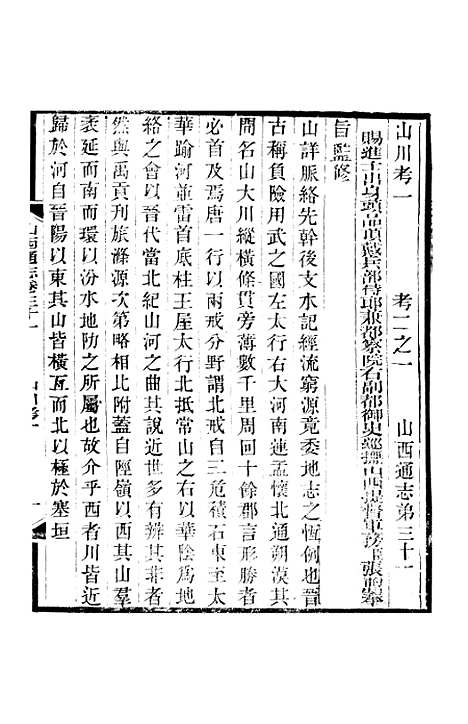 山川考一 考二之一 山西通志第三十一
賜進士出身頭品頂戴兵部侍郎兼都察院右副都御史巡撫山西提督軍務臣張煦奉
旨監修
山詳脈絡先幹後支水記經流窮源竟委地志之恆例也晉
古稱負險用武之國左太行右大河南連孟懷北通朔漠其
間名山大川縱橫條貫旁薄數千里周回十餘郡言形勝者
必首及焉唐一行以兩戒分野謂北戒自三危積石東至太
華踰河並雷首底柱王屋太行北抵常山之右以華陰為地
絡之會以晉代當北紀山河之曲其說近世多有辨其非者
然與禹貢刊旅滌源次第略相比附蓋自陘嶺以西其山羣
袤延而南而環以汾水地防之所屬也故介乎西者川皆近
歸於河自晉陽以東其山皆橫亙而北以極於塞垣
山西通志卷三十一 山川考一 一